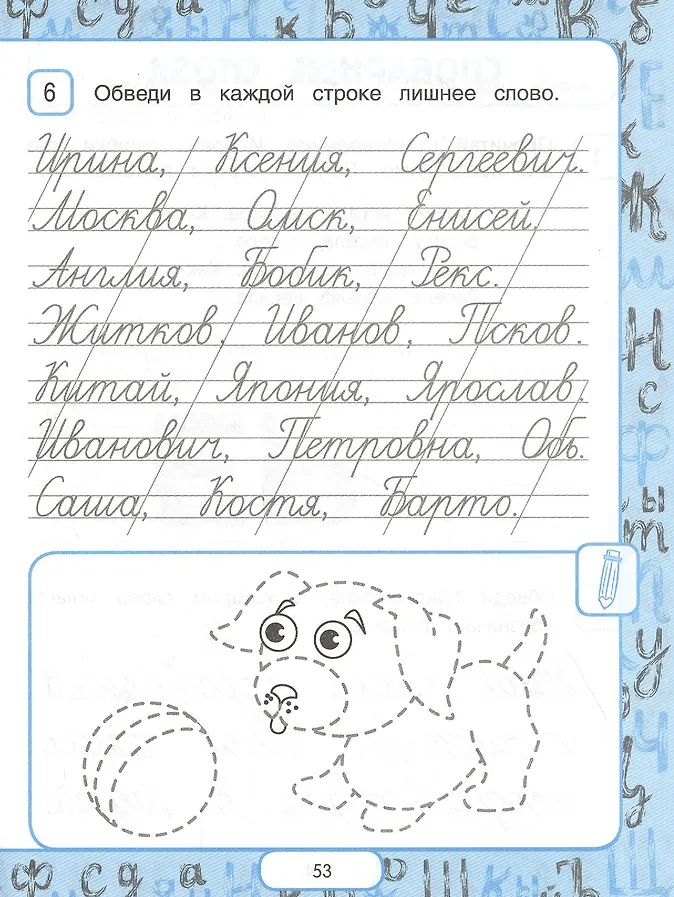 6 Обведи в каждой строке лишнее слово.
Ирина, Ксения, Сергеевич.
Москва, Омск, Енисей.
Англия, Бобик, Рекс.
Житков, Иванов, Псков.
Китай, Япония, Ярослав.
Иванович, Петровна, Обь.
Саша, Костя, Барто.
53